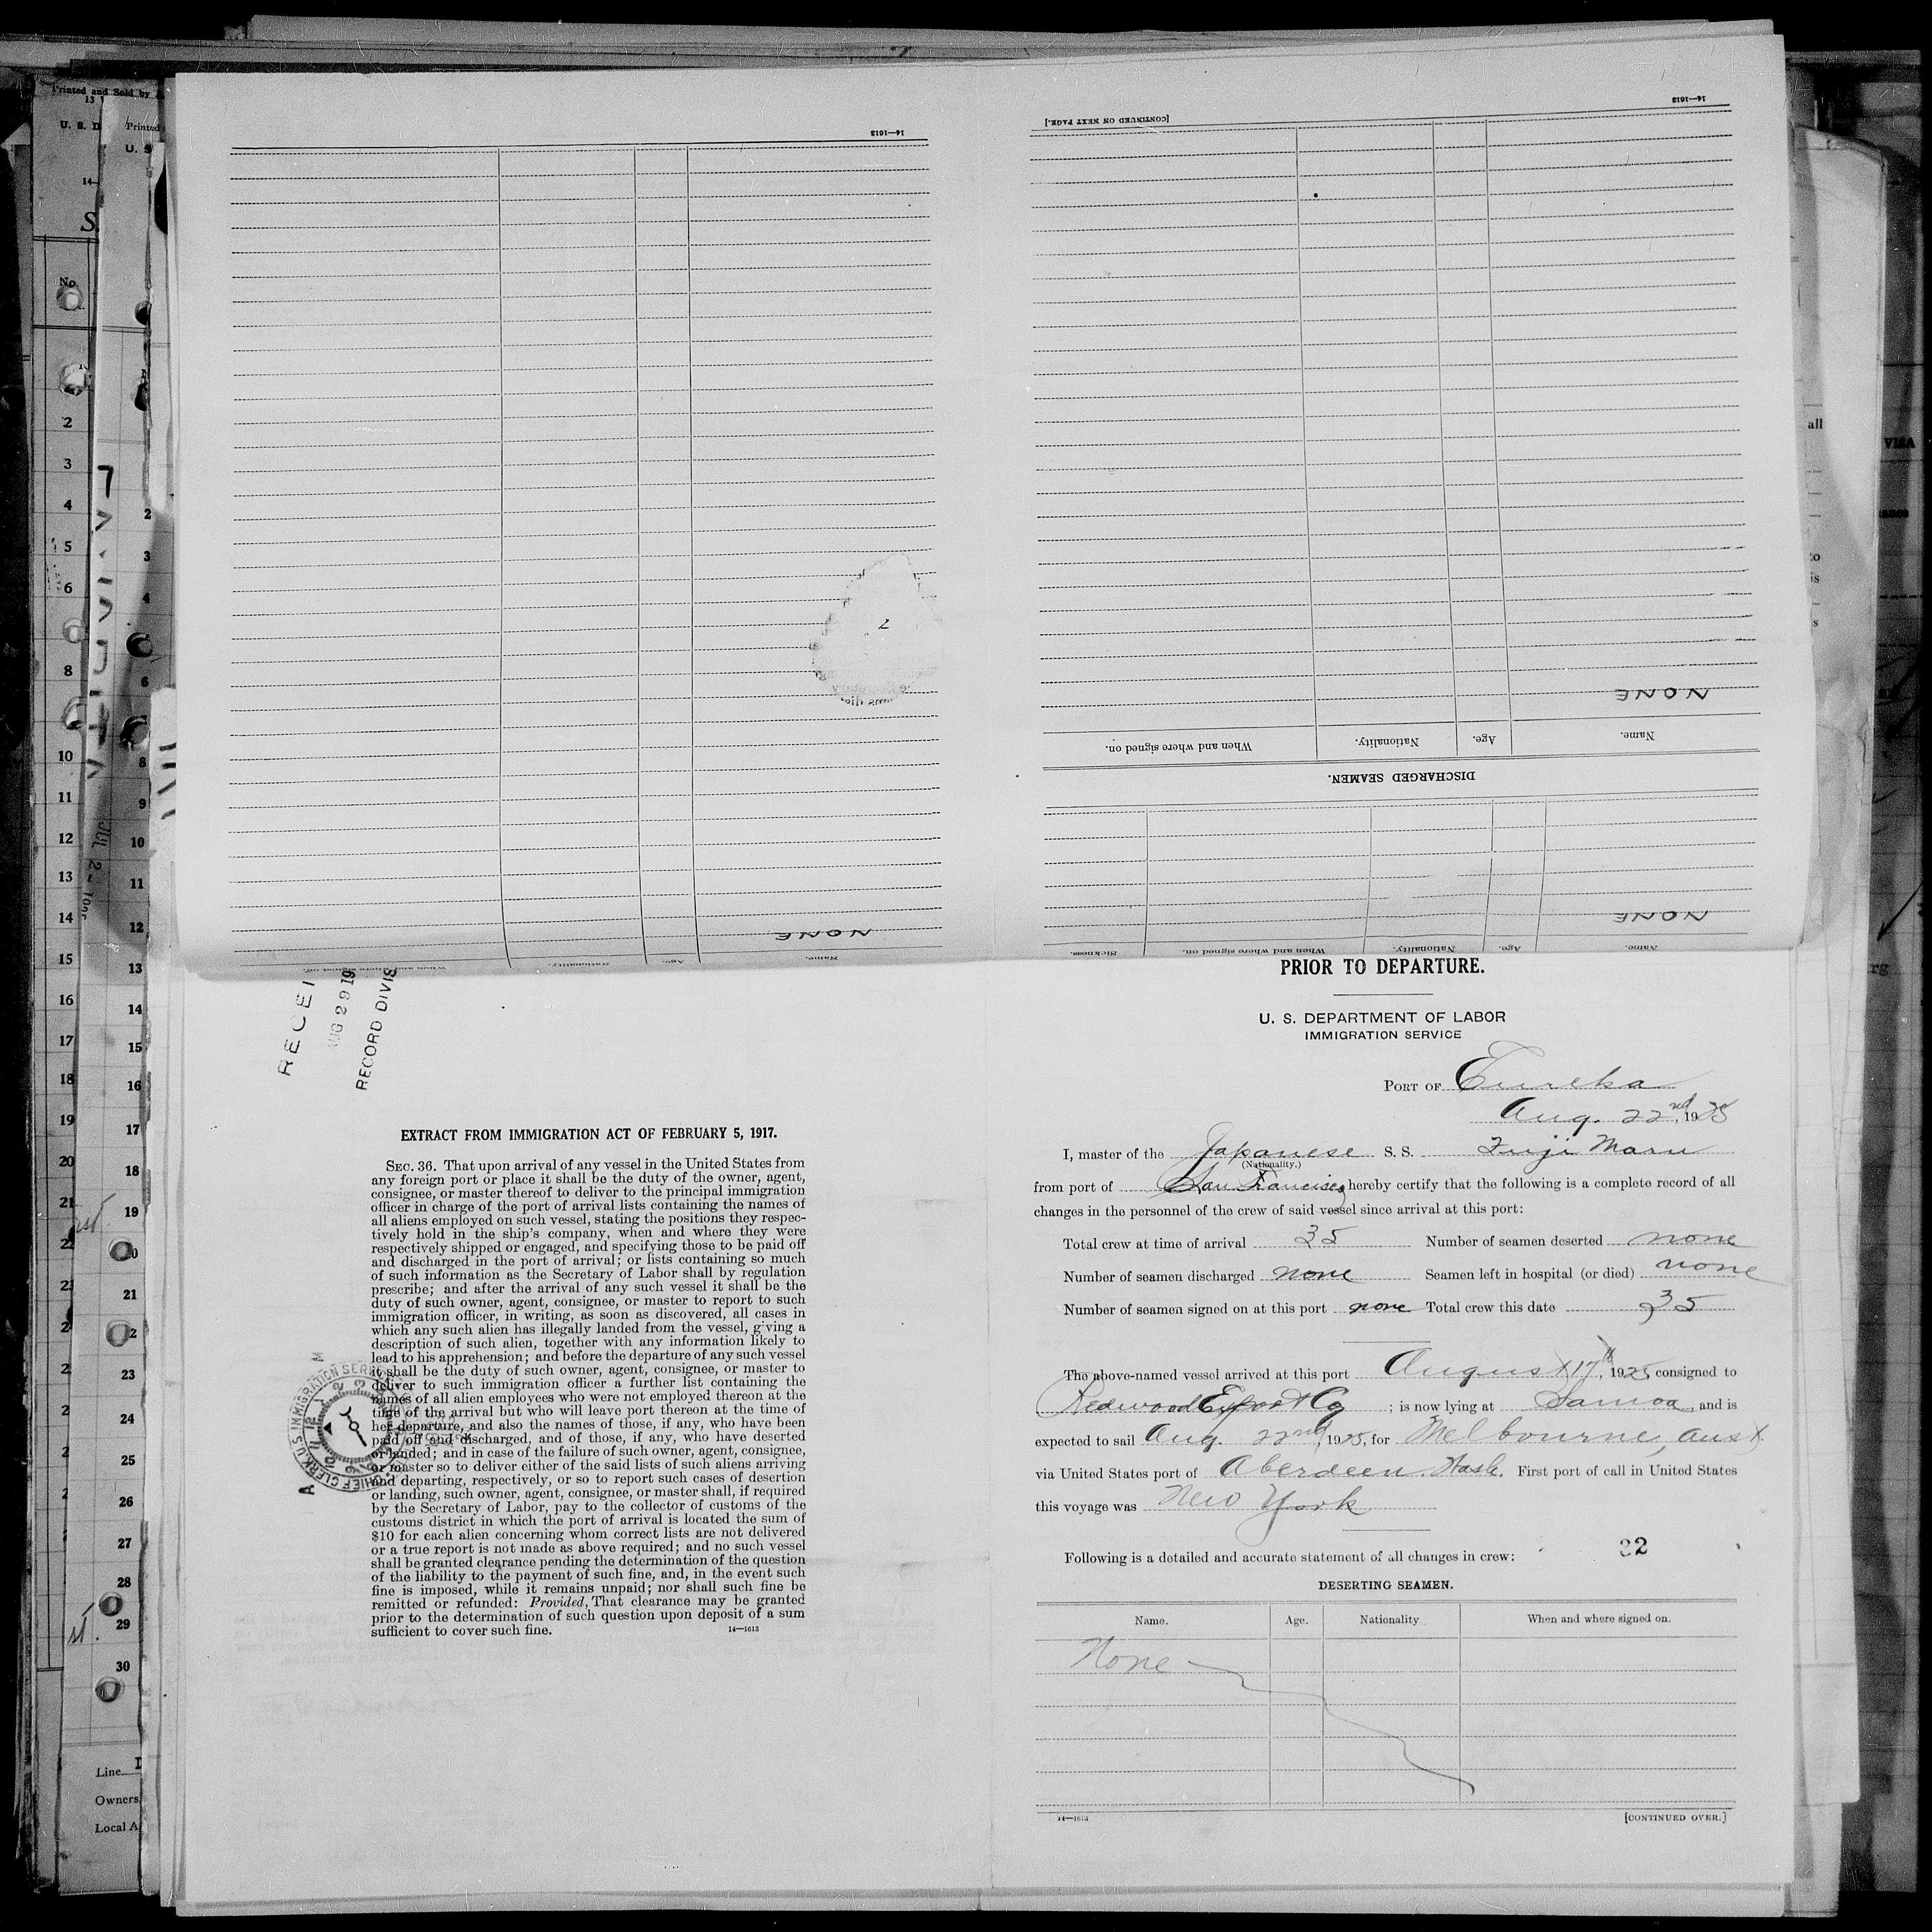 14—1613
NONE
Name.
Age.
Nationality.
When and where signed on.
[CONTINUED ON NEXT PAGE.]
14—1613
NONE
Name.
Age.
Nationality.
When and where signed on.
DISCHARGED SEAMEN.
NONE
Name.
Age.
Nationality.
When and where signed on.
Sickness.
RECORD DIVIS
EXTRACT FROM IMMIGRATION ACT OF FEBRUARY 5, 1917.
SEC. 36. That upon arrival of any vessel in the United States from
any foreign port or place it shall be the duty of the owner, agent,
consignee, or master thereof to deliver to the principal immigration
officer in charge of the port of arrival lists containing the names of
all aliens employed on such vessel, stating the positions they respec-
tively hold in the ship's company, when and where they were
respectively shipped or engaged, and specifying those to be paid off
and discharged in the port of arrival; or lists containing so much
of such information as the Secretary of Labor shall by regulation
prescribe; and after the arrival of any such vessel it shall be the
duty of such owner, agent, consignee, or master to report to such
immigration officer, in writing, as soon as discovered, all cases in
which any such alien has illegally landed from the vessel, giving a
description of such alien, together with any information likely to
lead to his apprehension; and before the departure of any such vessel
it shall be the duty of such owner, agent, consignee, or master to
deliver to such immigration officer a further list containing the
names of all alien employees who were not employed thereon at the
time of the arrival but who will leave port thereon at the time of
her departure, and also the names of those, if any, who have been
paid off and discharged, and of those, if any, who have deserted
or landed; and in case of the failure of such owner, agent, consignee,
or master so to deliver either of the said lists of such aliens arriving
and departing, respectively, or so to report such cases of desertion
or landing, such owner, agent, consignee, or master shall, if required
by the Secretary of Labor, pay to the collector of customs of the
customs district in which the port of arrival is located the sum of
$10 for each alien concerning whom correct lists are not delivered
or a true report is not made as above required; and no such vessel
shall be granted clearance pending the determination of the question
of the liability to the payment of such fine, and, in the event such
fine is imposed, while it remains unpaid; nor shall such fine be
remitted or refunded: Provided, That clearance may be granted
prior to the determination of such question upon deposit of a sum
sufficient to cover such fine. 14—1613
PRIOR TO DEPARTURE.
U. S. DEPARTMENT OF LABOR
IMMIGRATION SERVICE
PORT OF Eureka
Aug. 22nd, 1925
I, master of the Japanese S. S. Fuji Maru
(Nationality.)
from port of San Francisco, hereby certify that the following is a complete record of all
changes in the personnel of the crew of said vessel since arrival at this port:
Total crew at time of arrival 35 Number of seamen deserted none
Number of seamen discharged none Seamen left in hospital (or died) none
Number of seamen signed on at this port none Total crew this date 35
The above-named vessel arrived at this port August 17th, 1925 consigned to
Redwood Export Co ; is now lying at Samoa, and is
expected to sail Aug. 22nd, 1925, for Melbourne, Aust.
via United States port of Aberdeen. Wash. First port of call in United States
this voyage was New York
Following is a detailed and accurate statement of all changes in crew: 22
DESERTING SEAMEN.
Name. Age. Nationality. When and where signed on.
None
14—1613 [CONTINUED OVER.]